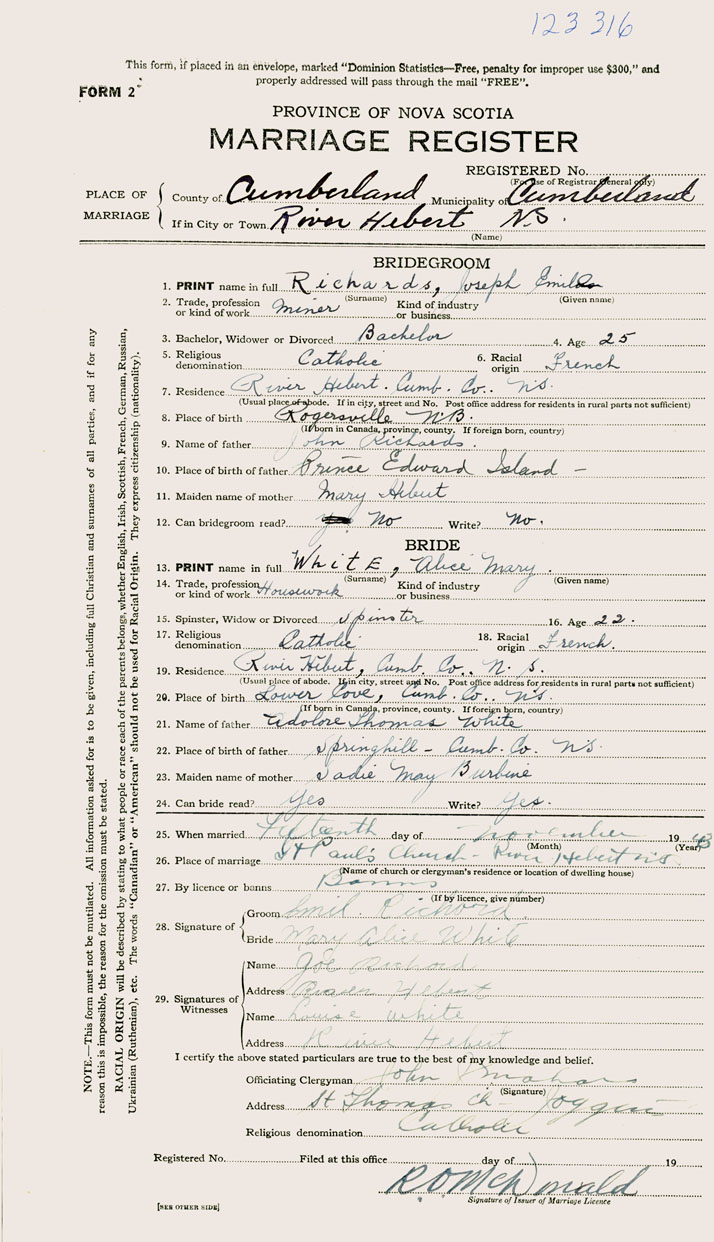 123 316
This form, if placed in an envelope, marked "Dominion Statistics—Free, penalty for improper use $300," and
properly addressed will pass through the mail "FREE".
FORM 2
PROVINCE OF NOVA SCOTIA
MARRIAGE REGISTER
REGISTERED No.
(For use of Registrar General only)
PLACE OF MARRIAGE
County of Cumberland Municipality of Cumberland
If in City or Town River Hebert N.S.
(Name)
BRIDEGROOM
1. PRINT name in full Richards, Joseph Emile
(Surname) (Given name)
2. Trade, profession or kind of work Miner Kind of industry or business
3. Bachelor, Widower or Divorced Bachelor 4. Age 25
5. Religious denomination Catholic 6. Racial origin French
7. Residence River Hebert. Cumb. Co. N.S.
(Usual place of abode. If in city, street and No. Post office address for residents in rural parts not sufficient)
8. Place of birth Rogersville N.B.
(If born in Canada, province, county. If foreign born, country)
9. Name of father John Richards.
10. Place of birth of father Prince Edward Island –
11. Maiden name of mother Mary Hebert
12. Can bridegroom read? No Write? No.
BRIDE
13. PRINT name in full White, Alice Mary.
(Surname) (Given name)
14. Trade, profession or kind of work Housework Kind of industry or business
15. Spinster, Widow or Divorced Spinster 16. Age 22.
17. Religious denomination Catholic 18. Racial origin French.
19. Residence River Hebert, Cumb. Co. N. S.
(Usual place of abode. If in city, street and No. Post office address for residents in rural parts not sufficient)
20. Place of birth Lower Cove, Cumb. Co. N.S.
(If born in Canada, province, county. If foreign born, country)
21. Name of father Adolore Thomas White
22. Place of birth of father Springhill – Cumb. Co. N.S.
23. Maiden name of mother Sadie May Burbine
24. Can bride read? Yes Write? Yes.
25. When married Fifteenth day of November 1943
(Month) (Year)
26. Place of marriage St Paul's Church – River Hebert N.S.
(Name of church or clergyman's residence or location of dwelling house)
27. By licence or banns Banns
(If by licence, give number)
28. Signature of
Groom Emil. Richard.
Bride Mary Alice White
29. Signatures of Witnesses
Name Joe Richard
Address River Hebert
Name Louise White
Address River Hebert
I certify the above stated particulars are true to the best of my knowledge and belief.
Officiating Clergyman John
(Signature)
Address St Thomas Ch – Joggins
Religious denomination Catholic
Registered No. Filed at this office day of 19
R O McDonald
Signature of Issuer of Marriage Licence
[SEE OTHER SIDE]
NOTE.—This form must not be mutilated. All information asked for is to be given, including full Christian and surnames of all parties, and if for any
reason this is impossible, the reason for the omission must be stated.
RACIAL ORIGIN will be described by stating to what people or race each of the parents belongs, whether English, Irish, Scottish, French, German, Russian,
Ukrainian (Ruthenian), etc. The words "Canadian" or "American" should not be used for Racial Origin. They express citizenship (nationality).